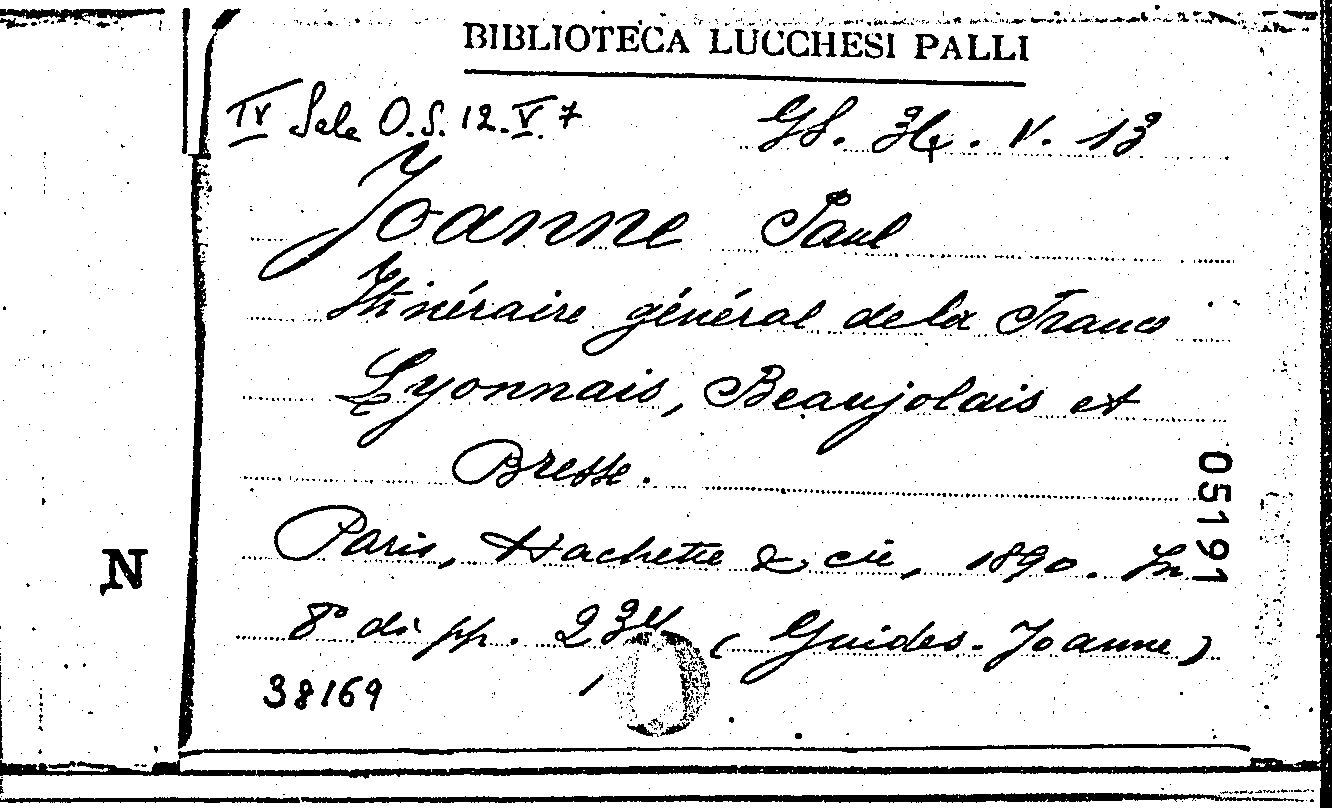 BIBLIOTECA LUCCHESI PALLI
IV Sala O.S. 12. V. 7
V. 13
Joanne Paul
Itinéraire général de la France
Lyonnais, Beaujolais et
Bresse.
Paris, Hachette & cie, 1890. In
8° di pp. 234 (Guides-Joanne)
38169
05191
N